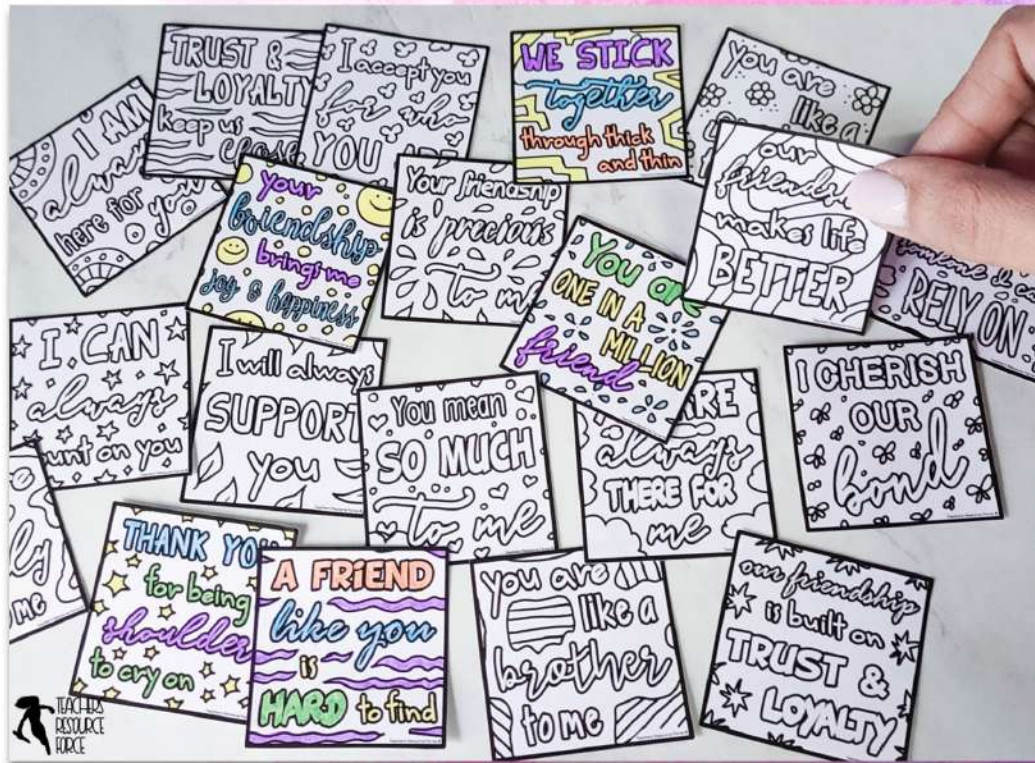 I AM
always
here for you
TRUST &
LOYALTY
keep us
close
I accept you
for who
YOU ARE
WE STICK
together
through thick
and thin
You are
like a
our
makes life
BETTER
RELY ON
your
friendship
brings me
joy & happiness
Your friendship
is precious
to me
You are
ONE IN A
MILLION
friend
I CAN
always
on you
I will always
SUPPORT
you
You mean
SO MUCH
to me
ARE
always
THERE FOR
me
I CHERISH
OUR
bond
me
THANK YOU
for being
shoulder
to cry on
A FRIEND
like you
is
HARD to find
you are
like a
brother
to me
our friendship
is built on
TRUST &
LOYALTY
TEACHERS
RESOURCE
FORCE